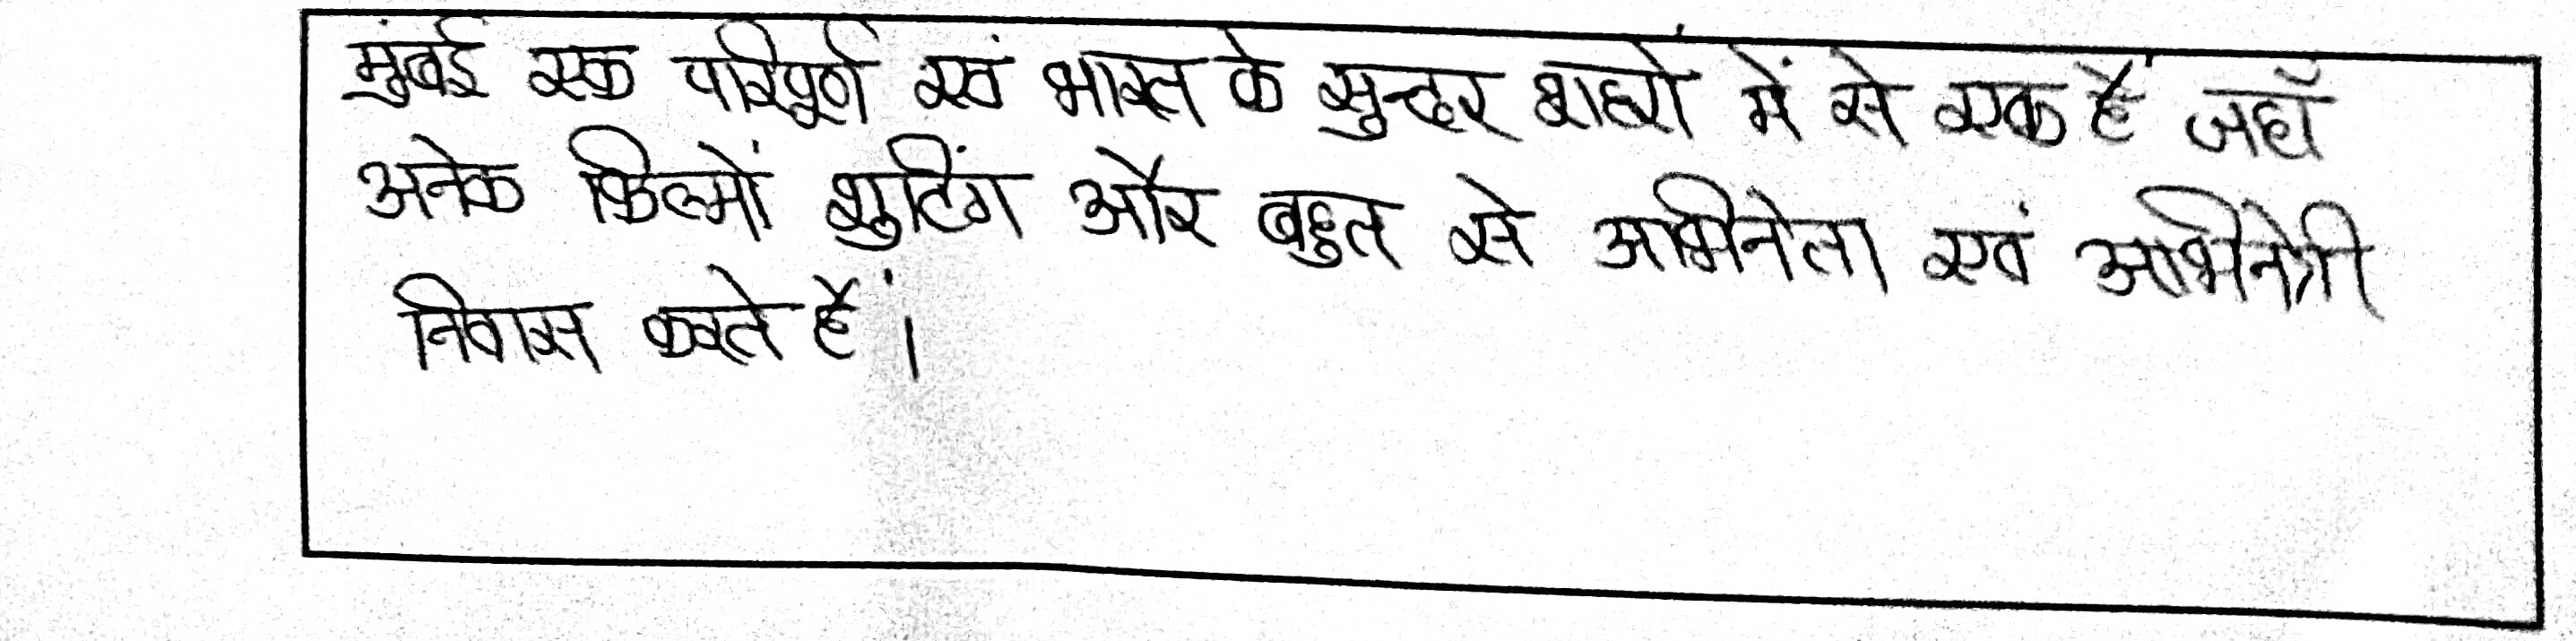 मुंबई एक परिपूर्ण एवं भारत के सुन्दर शहरों में से एक हैं जहाँ
अनेक फिल्मों शुटिंग और बहुत से अभिनेता एवं अभिनेत्री
निवास करते हैं।